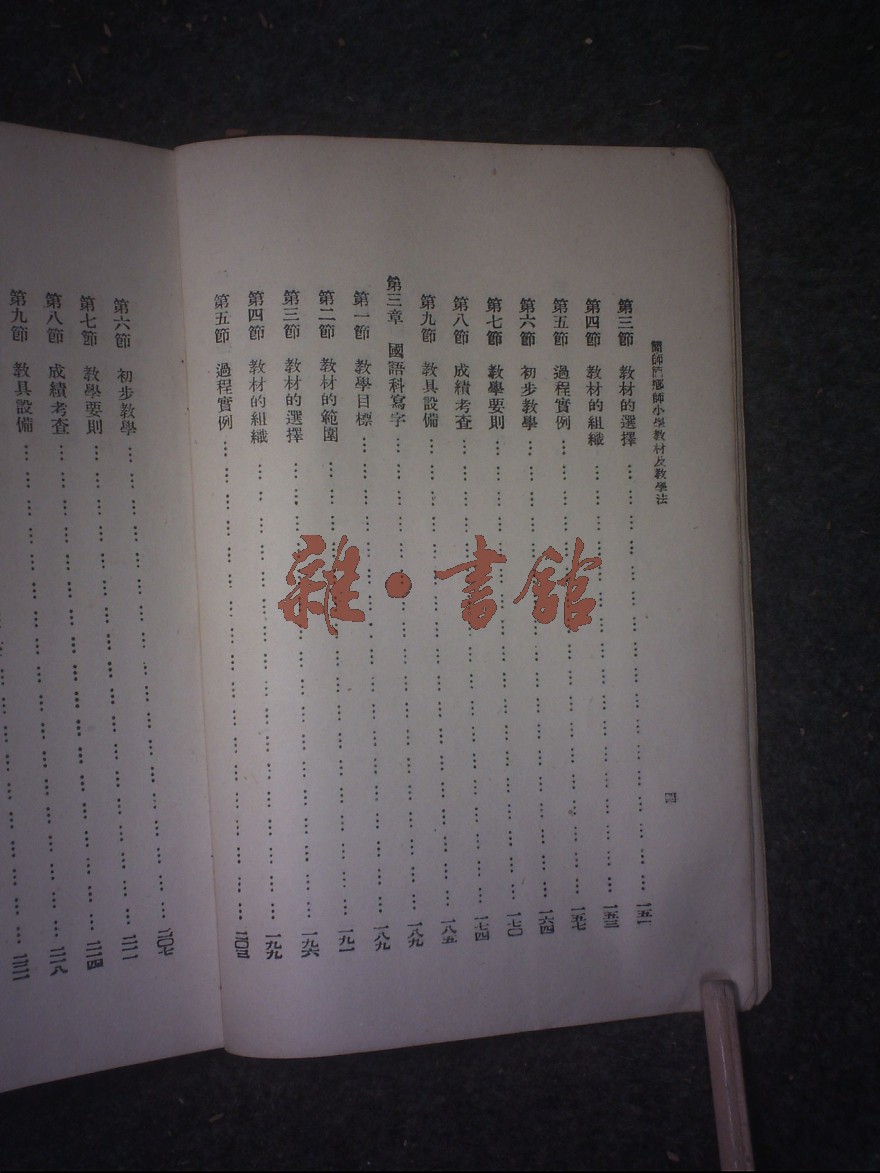 簡師簡鄉師小學教材及教學法 四
第三節 教材的選擇 … 一五一
第四節 教材的組織 … 一五三
第五節 過程實例 … 一五七
第六節 初步教學 … 一六四
第七節 教學要則 … 一七〇
第八節 成績考查 … 一七四
第九節 教具設備 … 一八五
第三章 國語科寫字 … 一八九
第一節 教學目標 … 一八九
第二節 教材的範圍 … 一九一
第三節 教材的選擇 … 一九六
第四節 教材的組織 … 一九九
第五節 過程實例 … 二〇三
第六節 初步教學 … 二〇七
第七節 教學要則 … 二一一
第八節 成績考查 … 二一四
第九節 教具設備 … 二一八
二二一
雜·書館